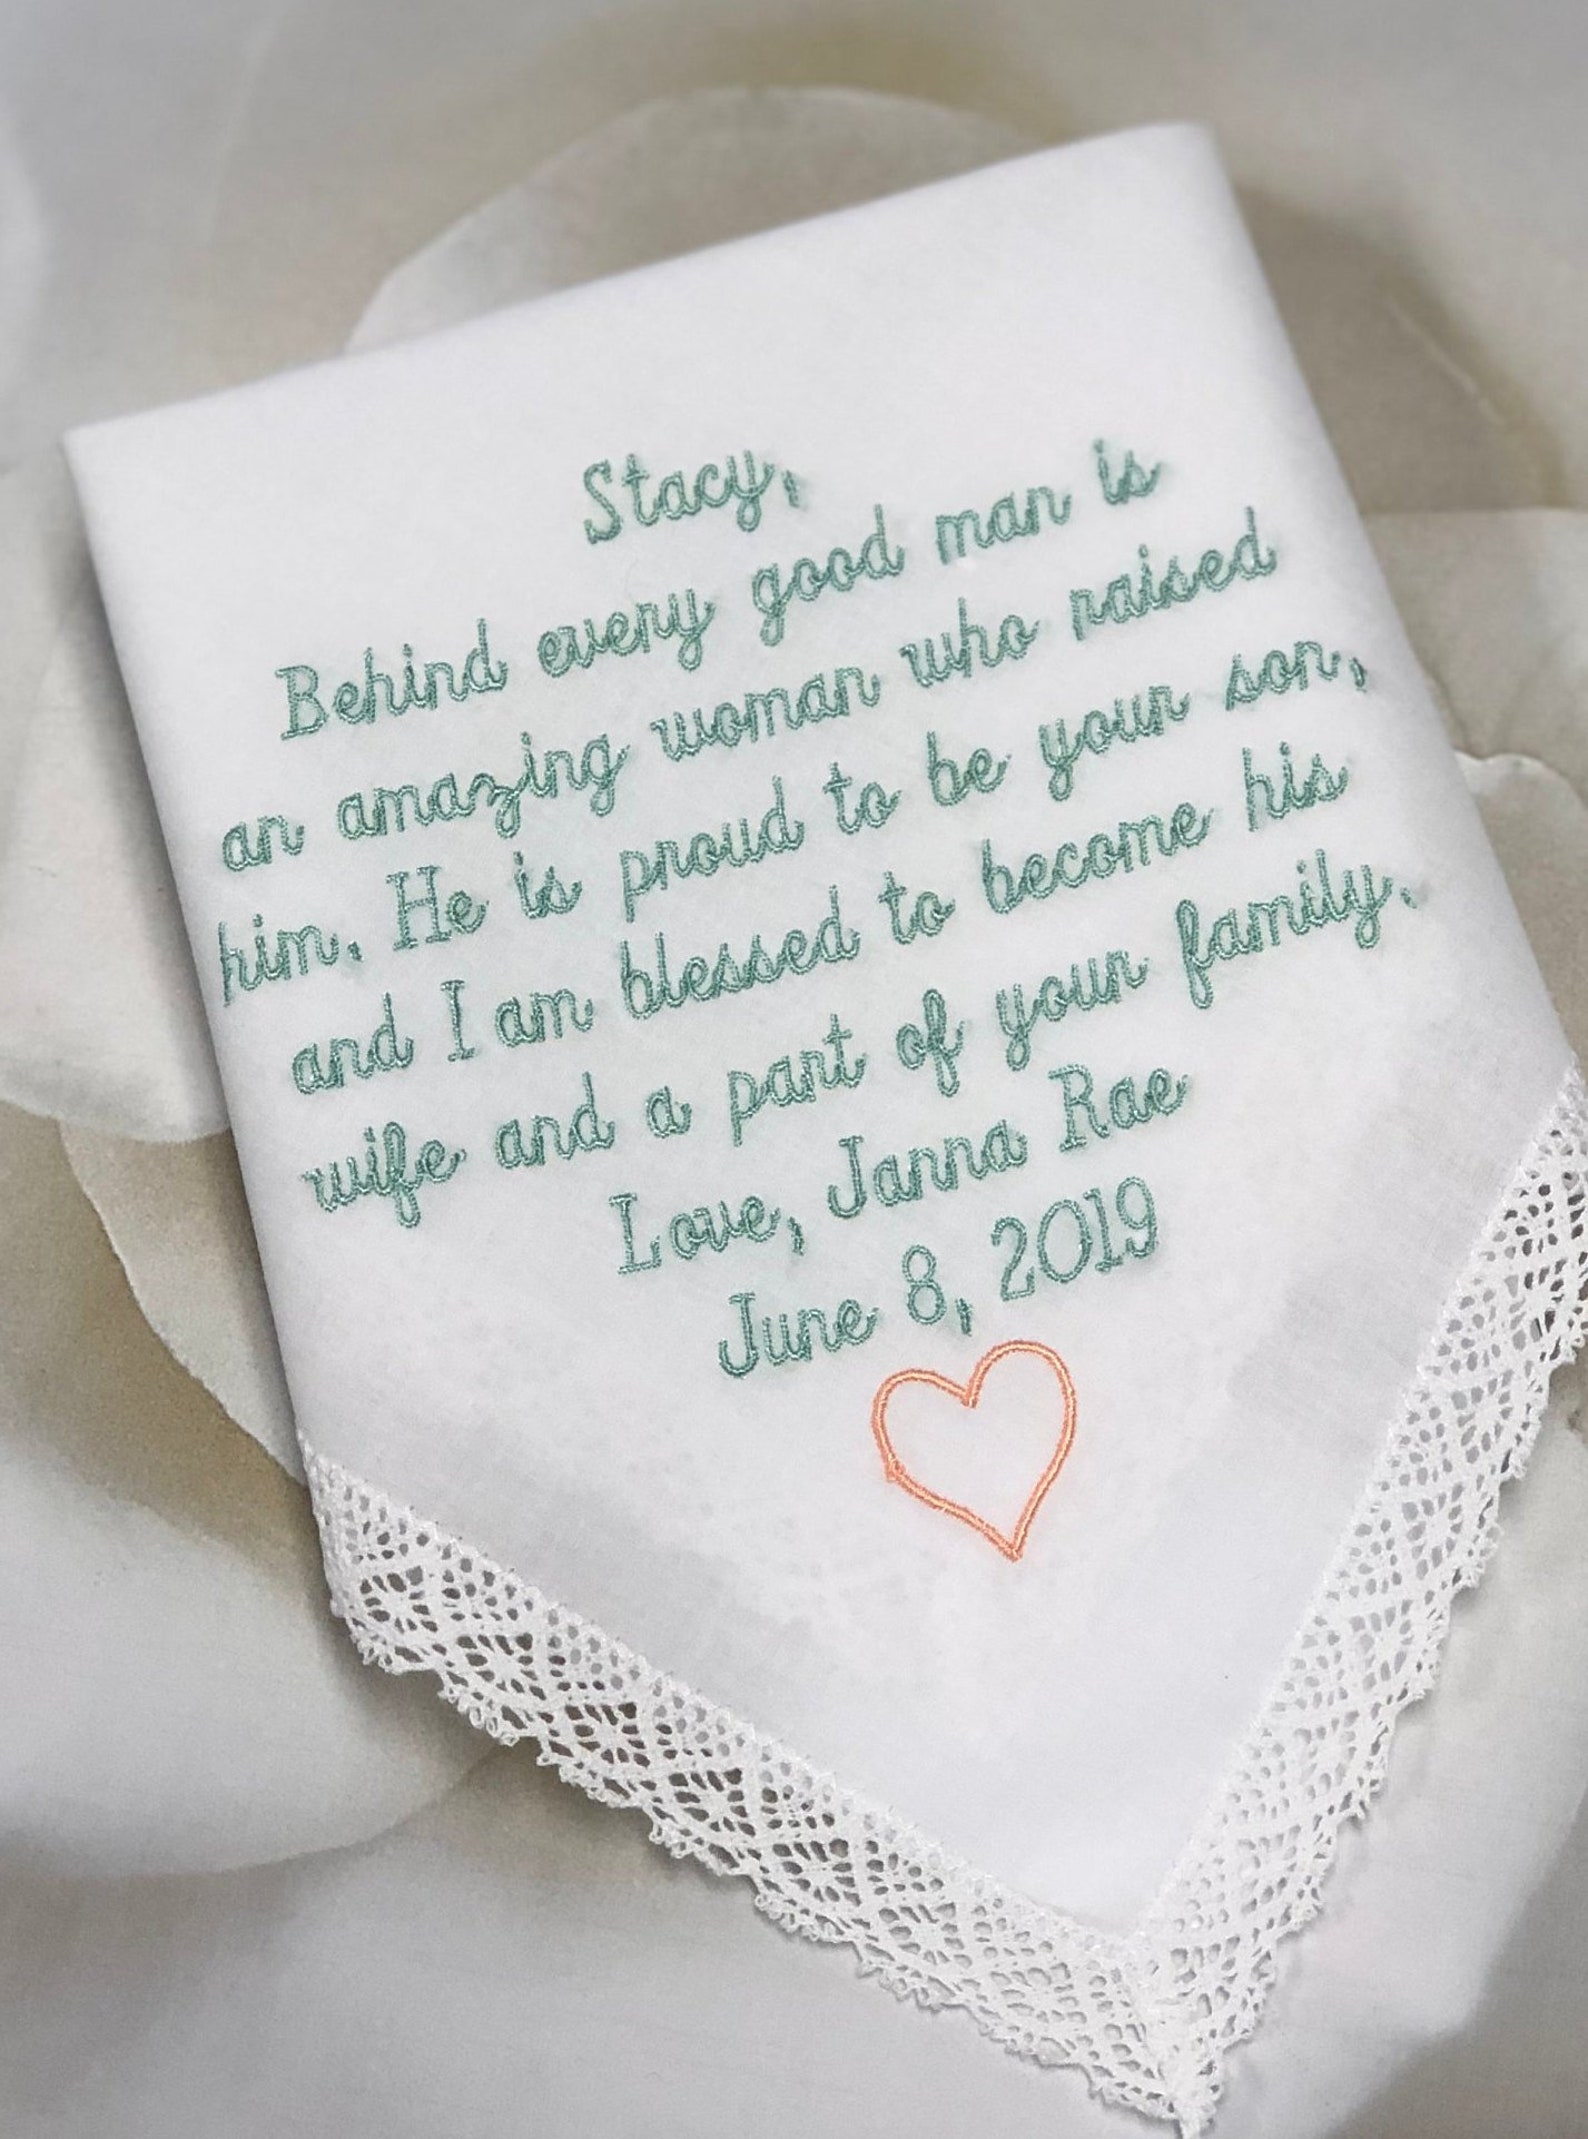 Stacy,
Behind every good man is
an amazing woman who raised
him. He is proud to be your son,
and I am blessed to become his
wife and a part of your family.
Love, Janna Rae
June 8, 2019